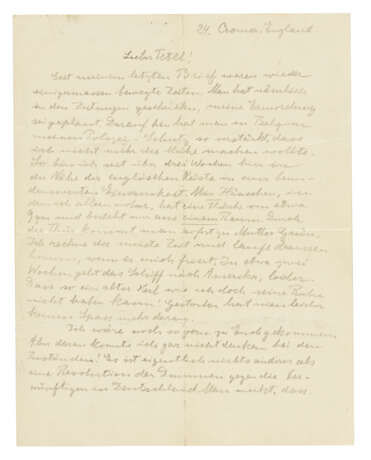 24. Cromer, England.
Lieber Tetel!
Seit meinem letzten Brief waren wieder
einigermassen bewegte Zeiten. Man hat nämlich
in den Zeitungen geschrieben, meine Ermordung
sei geplant. Darauf hin hat man in Belgien
meinen Polizei-Schutz so verstärkt, dass
ich nicht mehr das mache wollte.
So bin ich seit ihr drei Wochen hier in
der Nähe der englischen Küste in einer
Einsamkeit. Mein Häuschen, in
dem ich allein hat eine Fläche von etwa
qm und besteht nur aus einem Raum. Durch
die Thür kommt man sofort zu Mutter Grün.
Ich rechne die meiste Zeit und laufe draussen
herum, wenn es mich friert. In etwa zwei
Wochen geht das Schiff nach Amerika, leider.
Dass so ein alter Kerl wie ich doch seine Ruhe
nicht haben kann! Gestorben hat man leider
keinen Spass mehr daran.
Ich wäre noch so gern zu Euch gekommen.
Aber daran konnte ich gar nicht denken bei den
Zuständen! Es ist eigentlich nichts anderes als
eine Revolution der Dummen gegen die Ver-
nünftigen in Deutschland. Man merkt, dass